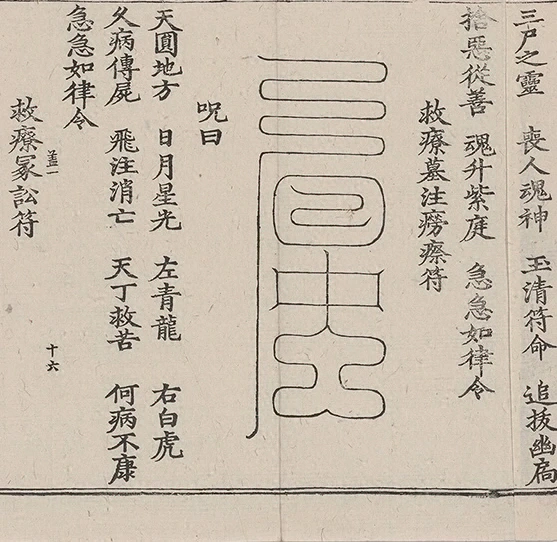 三尸之靈 喪人魂神 玉清符命 追拔幽扃
捨惡從善 魂升紫庭 急急如律令
救療墓注癆瘵符
呪曰
天圓地方 日月星光 左青龍 右白虎
久病傳屍 飛注消亡 天丁救苦 何病不康
急急如律令
救療冢訟符
盖一 十六